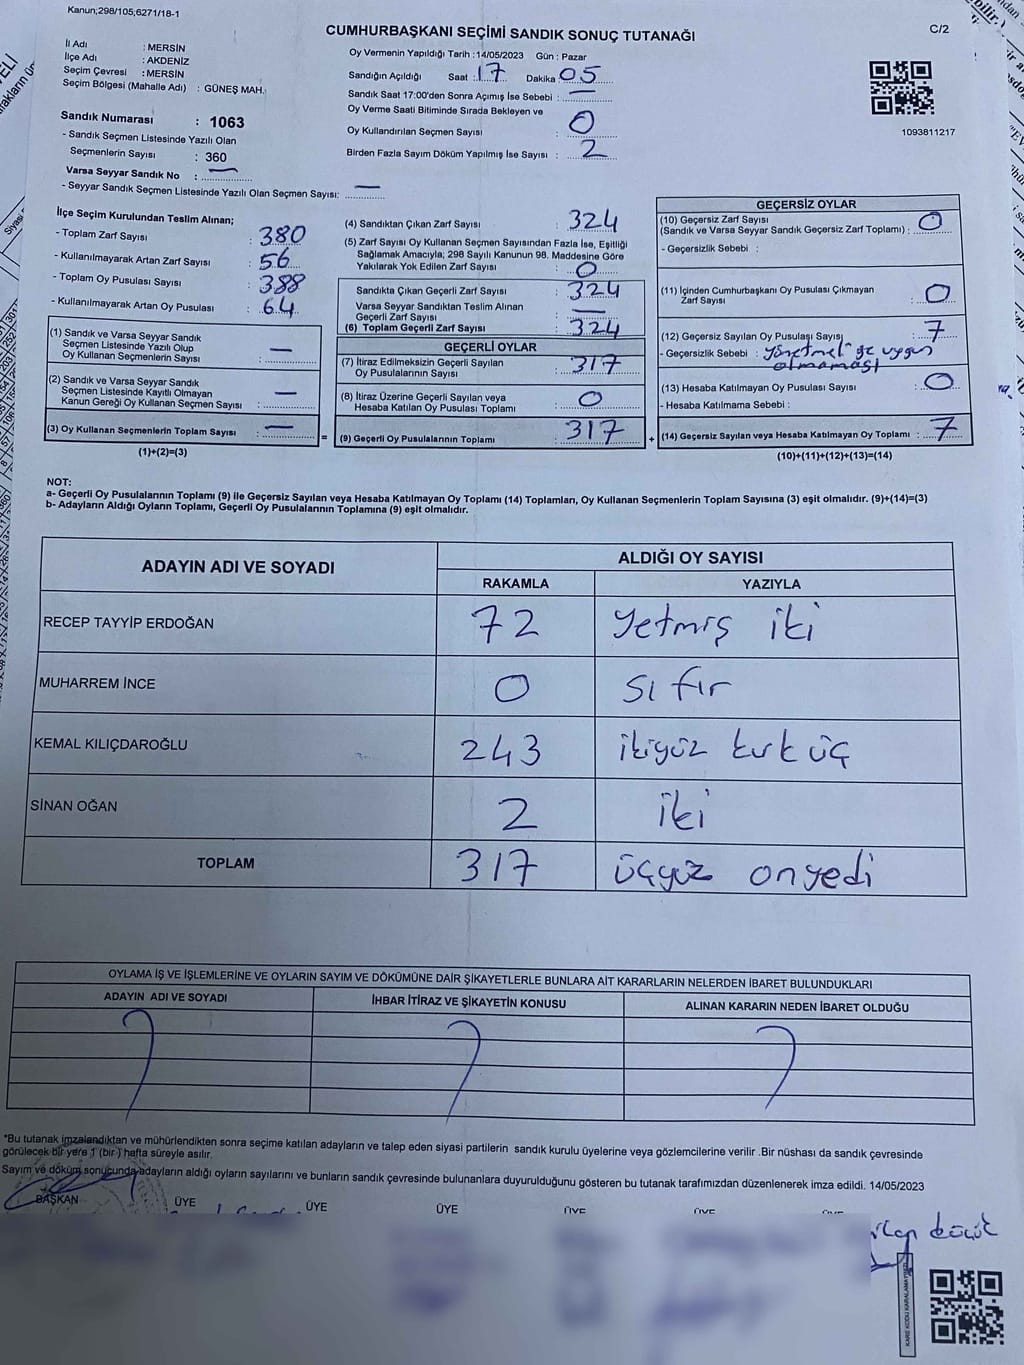 Kanun;298/105;6271/18-1
CUMHURBAŞKANI SEÇİMİ SANDIK SONUÇ TUTANAĞI
C/2
İl Adı : MERSİN
İlçe Adı : AKDENİZ
Seçim Çevresi : MERSİN
Seçim Bölgesi (Mahalle Adı) : GÜNEŞ MAH.
Sandık Numarası : 1063
- Sandık Seçmen Listesinde Yazılı Olan
Seçmenlerin Sayısı : 360
Varsa Seyyar Sandık No : —
- Seyyar Sandık Seçmen Listesinde Yazılı Olan Seçmen Sayısı: —
Oy Vermenin Yapıldığı Tarih :14/05/2023 Gün : Pazar
Sandığın Açıldığı Saat :17 Dakika :05
Sandık Saat 17:00'den Sonra Açımış İse Sebebi : —
Oy Verme Saati Bitiminde Sırada Bekleyen ve
Oy Kullandırılan Seçmen Sayısı : 0
Birden Fazla Sayım Döküm Yapılmış İse Sayısı : 2
1093811217
İlçe Seçim Kurulundan Teslim Alınan;
- Toplam Zarf Sayısı : 380
- Kullanılmayarak Artan Zarf Sayısı : 56
- Toplam Oy Pusulası Sayısı : 388
- Kullanılmayarak Artan Oy Pusulası : 64
(1) Sandık ve Varsa Seyyar Sandık
Seçmen Listesinde Yazılı Olup
Oy Kullanan Seçmenlerin Sayısı : —
(2) Sandık ve Varsa Seyyar Sandık
Seçmen Listesinde Kayıtlı Olmayan
Kanun Gereği Oy Kullanan Seçmen Sayısı : —
(3) Oy Kullanan Seçmenlerin Toplam Sayısı : —
(1)+(2)=(3)
(4) Sandıktan Çıkan Zarf Sayısı : 324
(5) Zarf Sayısı Oy Kullanan Seçmen Sayısından Fazla İse, Eşitliği
Sağlamak Amacıyla; 298 Sayılı Kanunun 98. Maddesine Göre
Yakılarak Yok Edilen Zarf Sayısı : 0
Sandıkta Çıkan Geçerli Zarf Sayısı : 324
Varsa Seyyar Sandıktan Teslim Alınan
Geçerli Zarf Sayısı : —
(6) Toplam Geçerli Zarf Sayısı : 324
GEÇERLİ OYLAR
(7) İtiraz Edilmeksizin Geçerli Sayılan
Oy Pusulalarının Sayısı : 317
(8) İtiraz Üzerine Geçerli Sayılan veya
Hesaba Katılan Oy Pusulası Toplamı : 0
= (9) Geçerli Oy Pusulalarının Toplamı : 317 +
GEÇERSİZ OYLAR
(10) Geçersiz Zarf Sayısı
(Sandık ve Varsa Seyyar Sandık Geçersiz Zarf Toplamı) : 0
- Geçersizlik Sebebi :
(11) İçinden Cumhurbaşkanı Oy Pusulası Çıkmayan
Zarf Sayısı : 0
(12) Geçersiz Sayılan Oy Pusulası Sayısı : 7
- Geçersizlik Sebebi : uygun
olmaması
(13) Hesaba Katılmayan Oy Pusulası Sayısı : 0
- Hesaba Katılmama Sebebi :
(14) Geçersiz Sayılan veya Hesaba Katılmayan Oy Toplamı : 7
(10)+(11)+(12)+(13)=(14)
NOT:
a- Geçerli Oy Pusulalarının Toplamı (9) ile Geçersiz Sayılan veya Hesaba Katılmayan Oy Toplamı (14) Toplamları, Oy Kullanan Seçmenlerin Toplam Sayısına (3) eşit olmalıdır. (9)+(14)=(3)
b- Adayların Aldığı Oyların Toplamı, Geçerli Oy Pusulalarının Toplamına (9) eşit olmalıdır.
ADAYIN ADI VE SOYADI ALDIĞI OY SAYISI
RAKAMLA YAZIYLA
RECEP TAYYİP ERDOĞAN 72 Yetmiş iki
MUHARREM İNCE 0 sıfır
KEMAL KILIÇDAROĞLU 243 ikiyüz kırk üç
SİNAN OĞAN 2 iki
TOPLAM 317 üçyüz onyedi
OYLAMA İŞ VE İŞLEMLERİNE VE OYLARIN SAYIM VE DÖKÜMÜNE DAİR ŞİKAYETLERLE BUNLARA AİT KARARLARIN NELERDEN İBARET BULUNDUKLARI
ADAYIN ADI VE SOYADI İHBAR İTİRAZ VE ŞİKAYETİN KONUSU ALINAN KARARIN NEDEN İBARET OLDUĞU
*Bu tutanak imzalandıktan ve mühürlendikten sonra seçime katılan adayların ve talep eden siyasi partilerin sandık kurulu üyelerine veya gözlemcilerine verilir .Bir nüshası da sandık çevresinde
görülecek bir yere 1 (bir ) hafta süreyle asılır.
Sayım ve döküm sonucunda adayların aldığı oyların sayılarını ve bunların sandık çevresinde bulunanlara duyurulduğunu gösteren bu tutanak tarafımızdan düzenlenerek imza edildi. 14/05/2023
BAŞKAN ÜYE ÜYE ÜYE ÜYE ÜYE
KARE KODU KARALAMAYINIZ